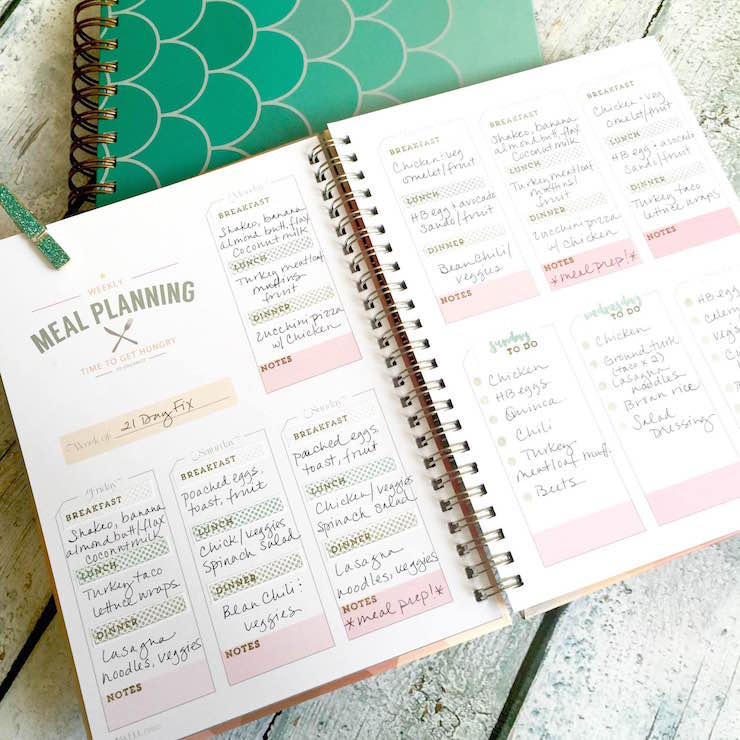 WEEKLY
MEAL PLANNING
TIME TO GET HUNGRY
Week of: 21 Day Fix
Monday
BREAKFAST
Shakeo, banana
almond butt, flax
coconut milk
LUNCH
Turkey meatloaf
muffins
fruit
DINNER
Zucchini pizza
w/ chicken
NOTES
Friday
BREAKFAST
Shakeo, banana
almond butt/flax
coconut milk
LUNCH
Turkey taco
lettuce wraps
DINNER
Lasagna
noodles, veggies
NOTES
Saturday
BREAKFAST
poached eggs,
toast, fruit
LUNCH
Chick/veggies
spinach salad
DINNER
Bean Chili:
veggies
NOTES
Sunday
BREAKFAST
poached eggs,
toast, fruit
LUNCH
Chicken/veggies
spinach salad
DINNER
Lasagna
noodles, veggies
NOTES
*meal prep!*
BREAKFAST
Chicken: veg
omelet/fruit
LUNCH
HB egg + avocado
sando/fruit
DINNER
Bean Chili/
veggies
NOTES
BREAKFAST
Shakeo, banana
almond butt, flax
coconut milk
LUNCH
Turkey meatloaf
muffins/
fruit
DINNER
Zucchini pizza
w/ chicken
NOTES
*meal prep!*
BREAKFAST
Chicken: veg
omelet/fruit
LUNCH
HB egg + avocado
sando/fruit
DINNER
Turkey taco
lettuce wraps
NOTES
sunday
TO DO
Chicken
HB eggs
Quinoa
Chili
Turkey
meatloaf muff.
Beets
wednesday
TO DO
Chicken
Ground turk
(taco x 2)
Lasagna
noodles
Brown rice
Salad
Dressing
HB egg